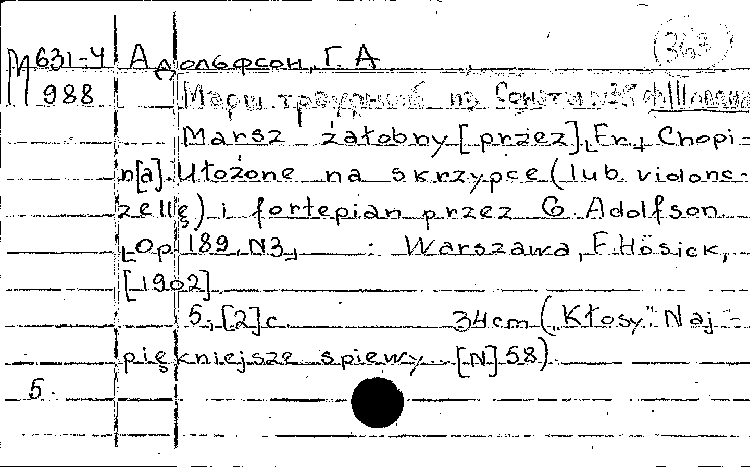 363
М 631-4 Адольфсон, Г. А
988 Марш траурный из Сонаты Ф. Шопена
Marsz żałobny [przez] ⌊Fr.⌋ Chopi-
n[a]. Ułożone na skrzypce (lub violonc-
zellę) i fortepian przez G. Adolfson
⌊Op. 189, N3⌋ : Warszawa, F. Hösick,
[1902]
5, [2] c. 34 cm („Kłosy". Naj-
piękniejsze śpiewy. [N] 58)
5.